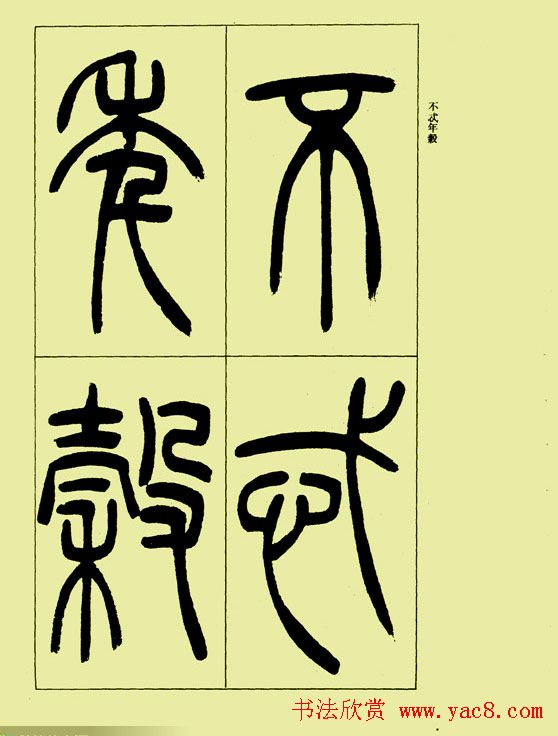 不忒年穀
不忒
年穀
书法欣赏 www.yac8.com